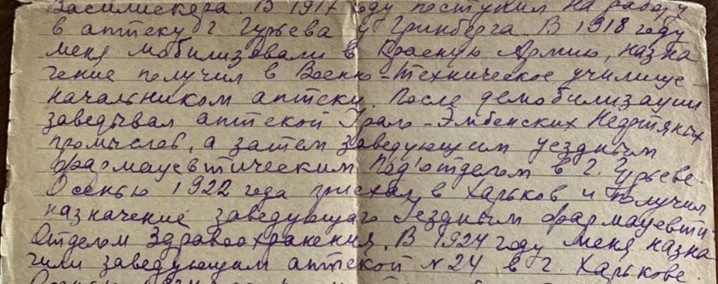 Василискера. В 1917 году поступил на работу
в аптеку г. Гурьева у Гринберга. В 1918 году
меня мобилизовали в Красную Армию, назна
чение получил в Военно-Техническое училище
начальником аптеки. После демобилизации
заведывал аптекой Урало-Эмбенских Нефтяных
промыслов, а затем заведующим уездным
фармацевтическим под'отделом в г. Гурьеве.
Осенью 1922 года приехал в Харьков и получил
назначение заведующего Уездным фармацевти
Отделом Здравоохранения. В 1924 году меня назна
чили заведующим аптекой № 24 в г. Харькове.